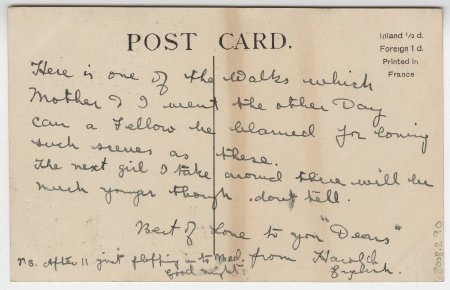 POST CARD.
Inland ½ d.
Foreign 1 d.
Printed in
France
Here is one of the Walks which
Mother & I went the other Day
can a Fellow be blamed for loving
such scenes as these.
The next girl I take around there will be
much younger though. dont tell.
Best of Love to you "Dears"
from Harold
N.B. After 11 just flopping in to Bed.
Good night.
2008.2.